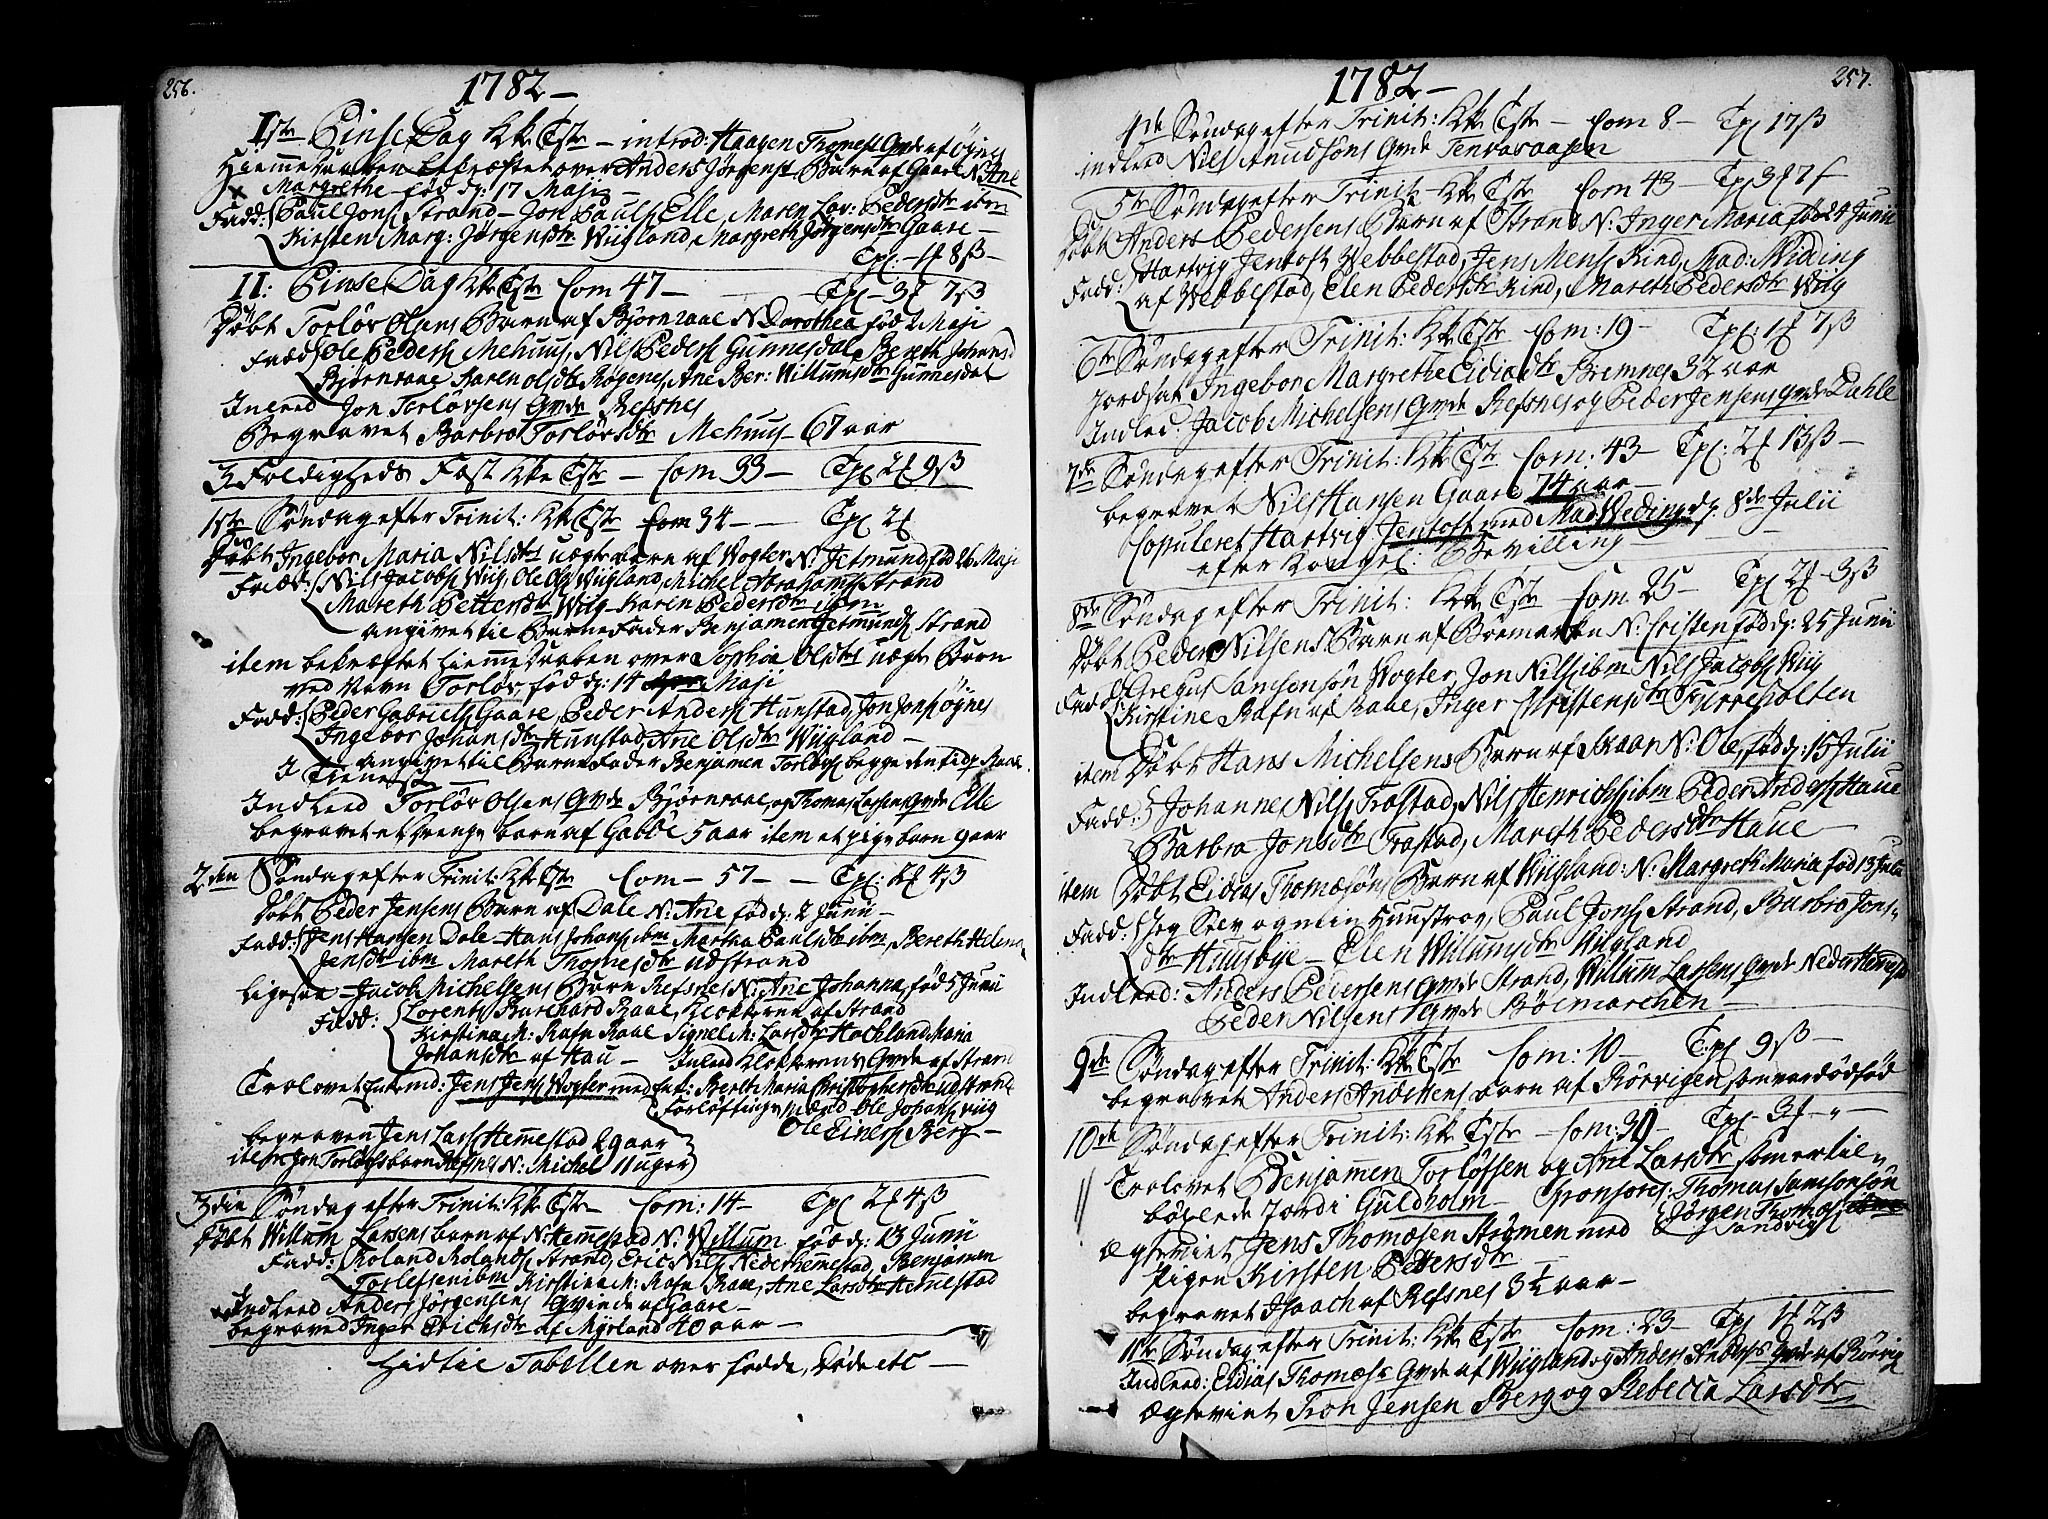 256.
1782 –
1ste Pinse Dag Kke Tste – introd: Haagen Thomes. Qvde af Øgnes
Hiemme Daaben bekræftet over Anders Jørgens. Barn af Gaare N. Ane
Margrethe – fød d: 17 Maji –
Fadd: Paul Jons. Strand – Jon Pauls. Elle, Maren Lov: Pedersdtr ibm
Kirsten Marg: Jørgensdtr Wiigland, Margreth Jørgensdtr Gaare –
Tpl. – 1 8 ß –
II: Pinse Dag Kke Tste Com 47 – Tpl – 3 7 ß
Døbt Torløv Olsens Barn af Bjørnraae N Dorothea fød 2 Maji
Fadd: Ole Peders. Mehuus, Nils Peders. Gunnesdal, Bereth Johansd
Bjørnraae Karen Olsdtr Røgenes, Ane Ber: Willumsdtr Gunnesdal
Inleed Jon Torløvsens Qvde Refsnes
Begravet Barbro Torløvsdtr Mehuus – 67 aar
3 Foldigheds Fæst Kke Tste – Com 33 – Tpl 2 9 ß
1ste Søndag efter Trinit: Kke Tste Com 34 – – Tpl 2
Døbt Ingebor Maria Nilsdtrs uægte barn af Vogter N: Jetmund fød 26 Maji
Fadd: Nils Jacobs. Wiig, Ole Ols. Wiigland, Michel Abrahams. Strand
Mareth Pettersdtr Wiig – Karen Pedersdtr ibm
angivet til Barne Fader Benjamen Jetmunds. Strand
item bekræftet hiemme Daaben over Sophia Olsdtrs uægte Barn
ved Navn Torløv, fød d: 14 Maji
Fadd: Peder Gabriels. Gaare, Peder Anders. Hunstad, Jon Jons. Øgnes
Ingebor Johansdtr Hunstad, Ane Olsdtr Wiigland –
angivet til Barne Fader Benjamen Torløvs. begge den tid paa Raae
I Tieneste
Indleed Torløv Olsens Qvde Bjørnraae, og Thomas Lassens Qvde Elle
begravet et drenge barn af Gabøe 5 aar item et pige barn 9 aar
2den Søndag efter Trinit: Kke Tste Com – 57 – – Tpl: 2 4 ß
Døbt Peder Jensens Barn af Dale N: Ane fød d: 2 Junii –
Fadd: Jens Hansen Dale – Hans Johans. ibm Martha Paulsdtr ibm, Bereth Helena
Jensdtr ibm Mareth Thomesdtr udstrand
Ligesaa – Jacob Michelsens Barn Refsnes N: Ane Johanna, fød 5 Junii
Fadd: Lorents Burchard Raae, Klokkerne af Strand
Kirstina M: Rafn Raae Signel M: Larsdtr Hochland Maria
Johansdtr af Hau – Inleed Klokkerens Qvde af Strand
Trolovet Enkemd: Jens Jens. Vogter med Enk: Bereth Maria Christophersdtr udstrand
Forløftings mænd Ole Johans. Wiig
Ole Einers. Berg –
begraven Jens Lars. Hemmestad 29 aar
item Jon Torløvs barn Refsnes N: Michel 11 uger
3die Søndag efter Trinit: Kke Tste Com: 14 – Tpl 2 4 ß
Døbt Willum Lassens barn af N: Hemmestad N: Willum fød d: 13 Junii
Fadd: Roland Rolands. Strand, Eric Nils. Nederhemmestad, Benjamen
Torlefsen ibm Kirstina M: Rafn Raae, Ane Larsdtr Hemmestad
Indleed Anders Jørgensens Qvinde af Gaare –
begraved Inger Erichsdtr af Myrland 40 aar –
Hidtil Tabellen over fødde, døde etc –
257.
1782 –
4de Søndag efter Trinit: Kke Tste – Com 8 – Tpl 17 ß
indleed Nils Knudsøns Qvde Tenvaraasen
5te Søndag efter Trinit – Kke Tste Com 43 – Tpl 3 7 ß
Døbt Anders Pedersens Barn af Strand N: Inger Maria fød 24 Junii
Fadd: Hartvig Jentoft Webbestad, Jens Mens. Kind, Mad: Widding
af Webbestad, Elen Pedersdtr Kind, Mareth Pedersdtr Wiig
6te Søndag efter Trinit: Kke Tste Com: 19 – Tpl: 1 7 ß
Jordsat Ingebor Margrethe Eidiasdtr Bremnes 32 aar
Indled: Jacob Michelsens Qvde Refsnes og Peder Jensens Qvde Dahle
7de Søndag efter Trinit: Kke Tste Com: 43 – Tpl: 2 13 ß –
begravet Nils Hansen Gaare 74 aar –
Copuleret Hartvig Jentoft med Mad: Weding d: 8de Julii
efter Kongel: Bevilling
8de Søndag efter Trinit: Kke Tste Com 25 – Tpl 2 – 3 ß
Døbt Peder Nilsens Barn af Bøemarken N: Cristen fød d: 25 Junii
Fadd: Gregus Samsonsøn Vogter, Jon Nils. ibm Nils Jacobs. Wiig
Kirstine Rafn af Raae, Inger Christensdtr Tyrreholten
item Døbt Hans Michelsens Barn af Skaar N: Ole, fød d: 15 Julii
Fadd: Johannes Nils. Trastad, Nils Henrichs. ibm Peder Anders. Haue
Barbra Jonsdtr Trastad, Mareth Pedersdtr Haue –
item Døbt Eidias Thomæsøns Barn af Wiigland: N: Margreth Maria fød 13 Julii
Fadd: Jeg Selv og min Huustrov, Paul Jons. Strand, Barbro Jons-
dtr Huusbye – Elen Willumsdtr Wigland
Indleed: Anders Pedersens Qvde Strand, Willum Lassens Qvde Neder Hemmestad
Peder Nilsens Qvde Bøemarchen –
9de Søndag efter Trinit: Kke Tste Com: 10 – Tpl 9 ß –
begravet Anders Andersens barn af Rørvigen som var dødfød
10de Søndag efter Trinit: Kke Tste – Com: 39 – Tpl – 3 – „ –
Trolovet Benjamen Torløfsen og Ane Larsdtr som er til-
bøxlede Jord i Guldholm – Sponsores: Thomas Samsonsøn
Jørgen Thomas. Sandvig
Ægteviet Jens Thomæsen Strømen med
Pigen Kirsten Pettersdtr –
begravet Isaach af Refsnes 3½ aar –
11te Søndag efter Trinit: Kke Tste Com: 23 – Tpl 1 2 ß
Indleed: Eidias Thomæs. Qvde af Wiigland og Anders Anders. Qvde af Rørvig
Ægteviet Tron Jensen Berg og Rebecca Larsdtr